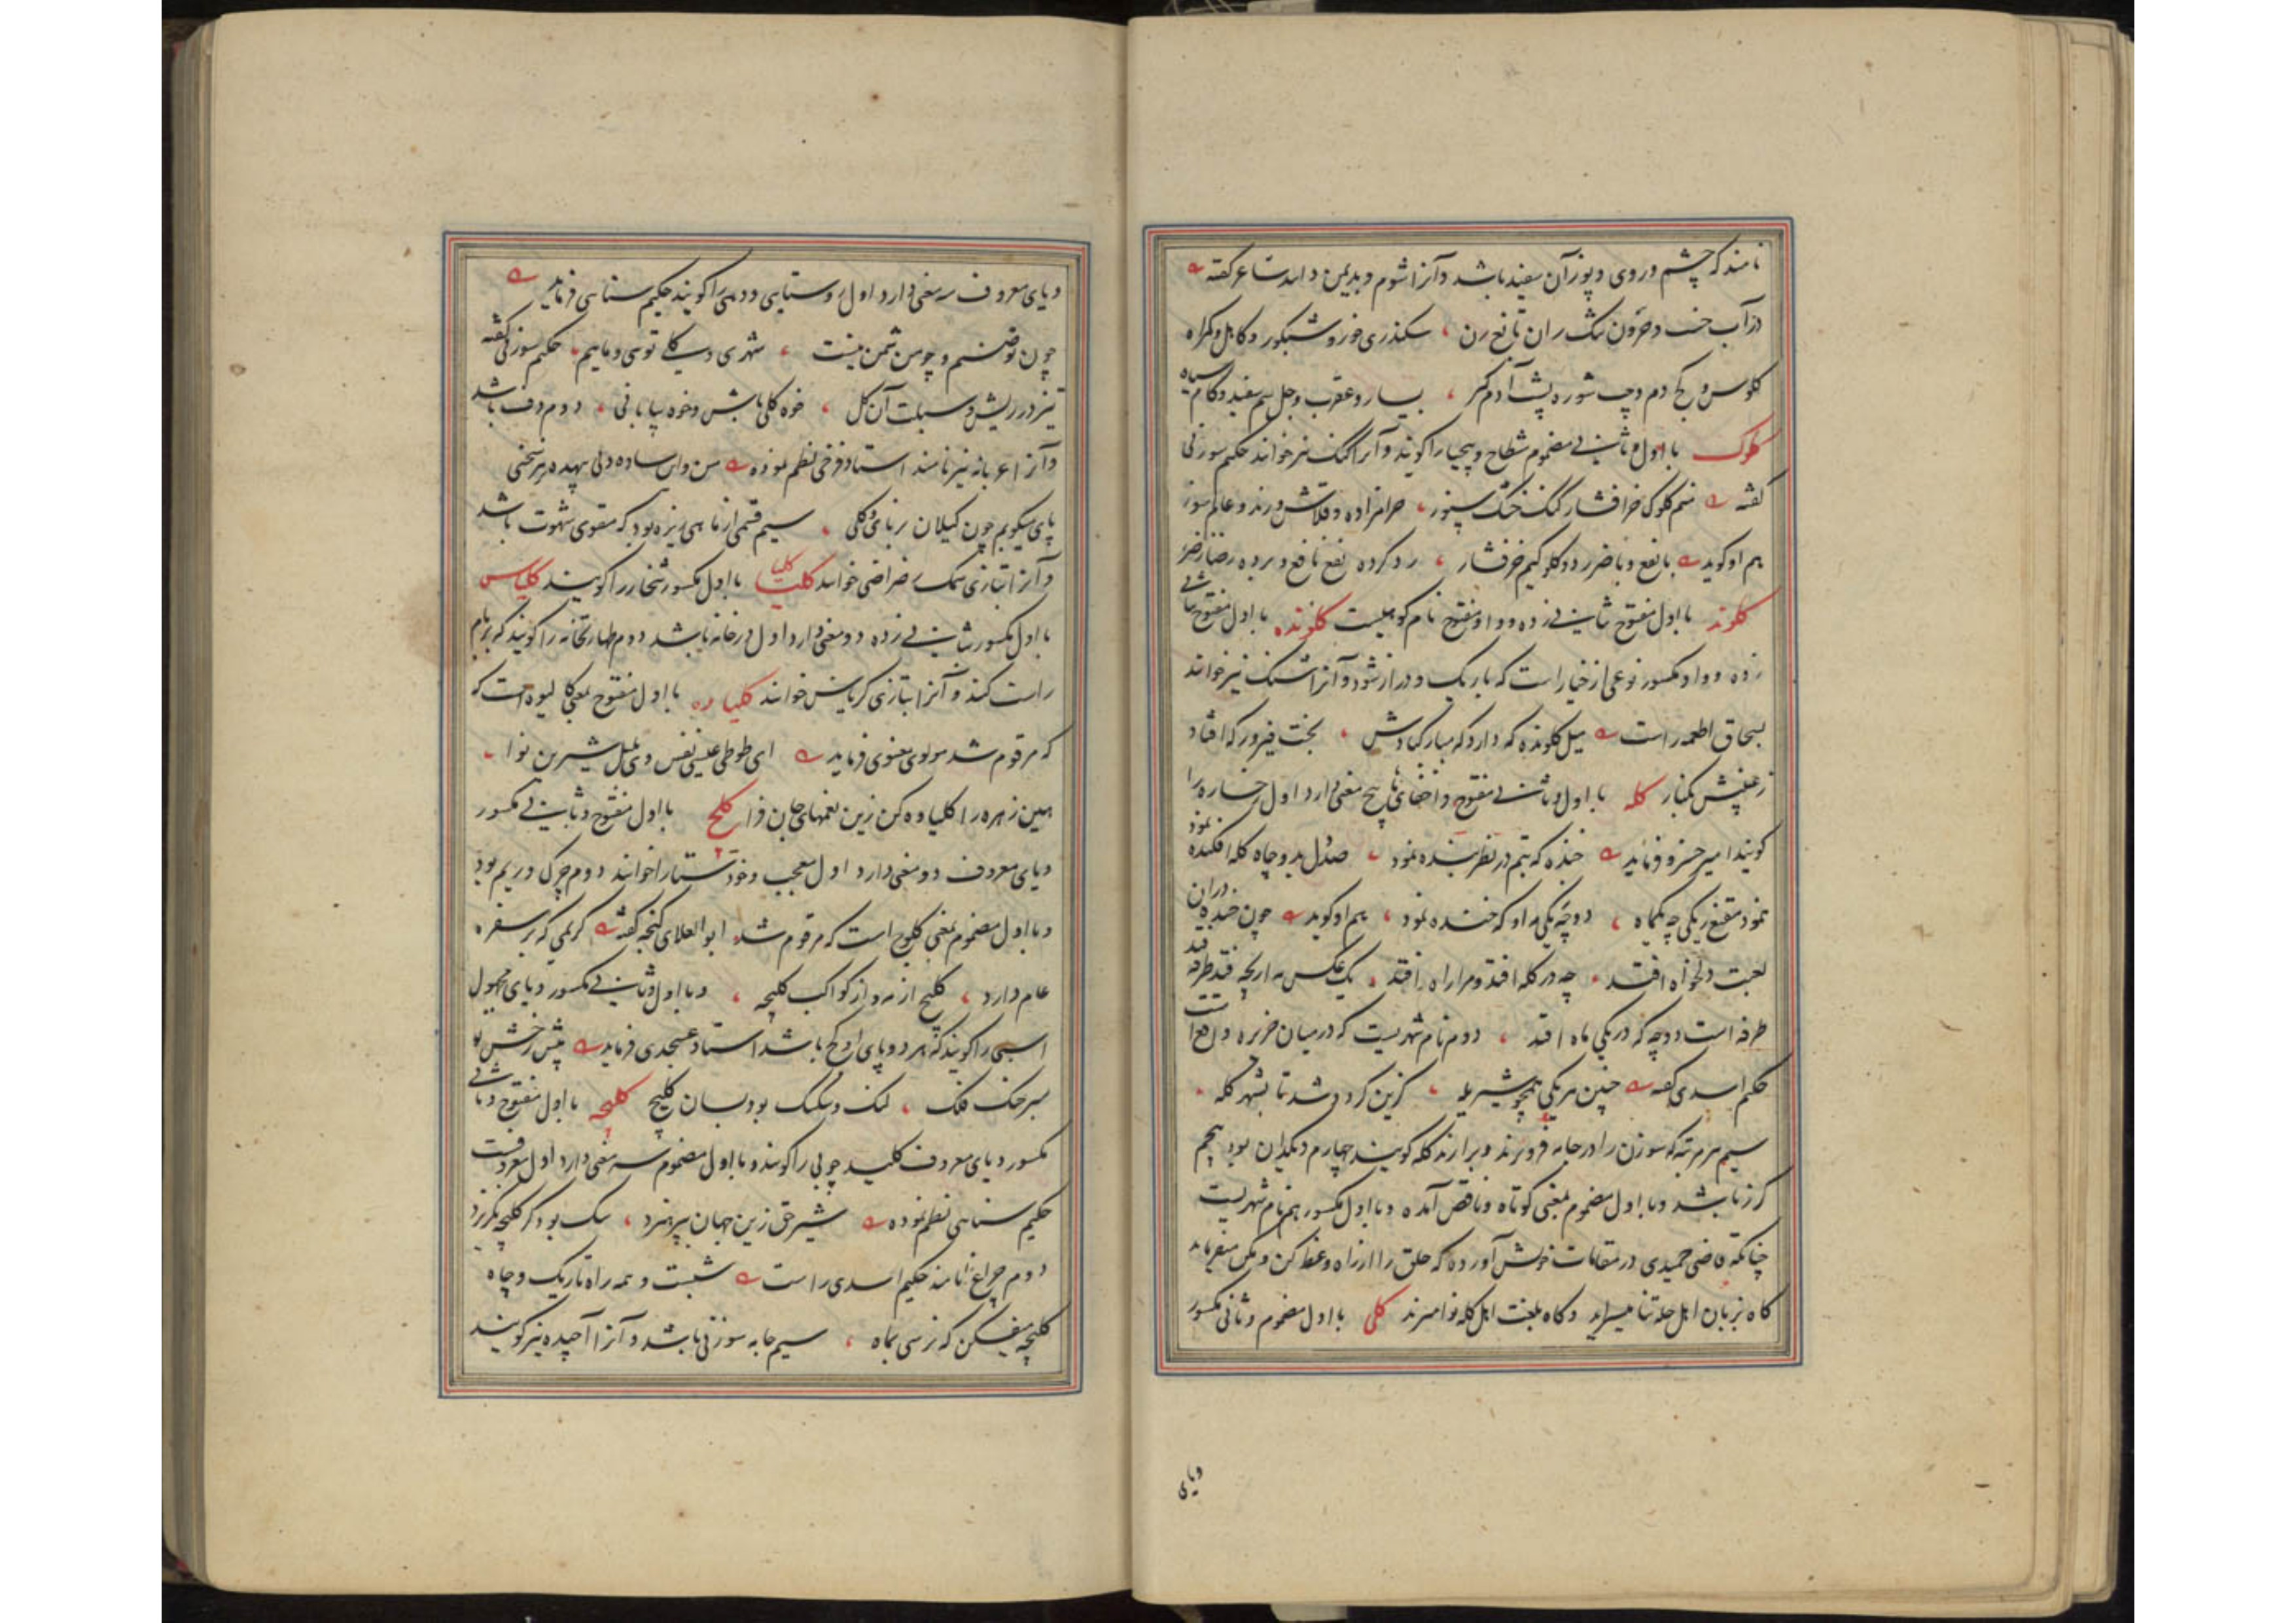 نامند که چشم و روی و پوز آن سفید باشد و آنرا شوم و بدیمن دانند شاعر گفته
در آب خسب و حرون سگ ران تا نع زن ، سکندری خور و شبکور و کاهل و گمراه
کلوس و کج دم و چپ شوره پشت آدم گیر ، یسار و عقرب و جل سم سفید و کام سیاه
کلوک با اول و ثانی مضموم شطاح و بیحیا را گویند و آنرا کنگ نیز خوانند حکیم سوزنی
گفته منم کلوک خرافشار کنگ خشک سپوز ، حرامزاده و قلاش و رند و عالم سوز
هم او گوید با نفع و با ضرر دو کلوکیم خرفشار ، رد کرده نفع نافع و برده ضرار ضر
کلوند با اول مفتوح بثانی زده و واو مفتوح نام کوهیست کلونده با اول مفتوح بثانی
زده و واو مکسور نوعی از خیار است که باریک و دراز شود و آنرا شنگ نیز خوانند
بسحاق اطعمه راست میل کلونده که دارد که مبارکبادش ، بخت فیروز که افتاد
ز غیبش بکنار کله با اول و ثانی مفتوح و اخفای ها پنج معنی دارد اول رخساره را
گویند امیر خسرو فرماید خنده که بتم در نظر بنده نمود ، صد دل بدو چاه کله افکنده نمود
نمود مقنع ز یکی چه یکماه ، دو چه یکی مه او که خنده نمود ، هم او گوید چون خنده در آن
لعبت دلخواه افتد ، چه در کله افتد و مرا راه افتد ، یک عکس مه ار بچه فتد طرفه فتد
طرفه است دو چه که در یکی ماه افتد ، دوم نام شهریست که در میان جزیره واقع است
حکیم اسدی گفته چنین هر یکی همچو شیر یله ، گزین کرد و شد تا بشهر کله
سیم هر مرتبه که سوزن را در جامه فرو برند و برارند کله گویند چهارم دیکدان بود پنجم
کرز باشد و با اول مضموم بمعنی کوتاه و ناقص آمده و با اول مکسور هم نام شهریست
چنانکه قاضی حمیدی در مقامات خویش آورده که حلق را از راه وعظ کن و مکن میفرماید
کاه بزبان اهل حله ثنا میسراید و کاه بلغت اهل کله نوا میزند کلی با اول مضموم و ثانی مکسور
ویای
ویای معروف سه معنی دارد اول روستایی و دهی را گویند حکیم سنایی فرماید
چون تو صنم و چو من شمن نیست ، شهری و کلی تویی و مائیم ، حکیم سوزنی گفته
تیز در ریش و سبلت آن کل ، خوه کلی باش و خوه بیابانی ، دوم دف باشد
و آنرا عربانه نیز نامند استاد فرخی نظم نموده من و این ساده دلی بیهده هر سخنی
پای میکوبم چون کیلان بر نای و کلی ، سیم قسمی از ماهی ریزه بود که مقوی شهوت باشد
و آنرا بتازی سمک رضراضی خوانند کلیا با اول مکسور شخار را گویند کلیاس
با اول مکسور بثانی زده دو معنی دارد اول درخانه باشد دوم طهارتخانه را گویند که بر بام
راست کنند و آنرا بتازی کریاس خوانند کلیاوه با اول مفتوح بمعنی کالیوه است که
که مرقوم شد مولوی معنوی فرماید ای طوطی عیسی نفس وی بلبل شیرین نوا
هین زهره را کلیاوه کن زین نغمهای جان فزا کلیج با اول مفتوح و ثانی مکسور
ویای معروف دو معنی دارد اول معجب و خودستا را خوانند دوم چرک و ریم بود
و با اول مضموم بمعنی کلوج است که مرقوم شد ابوالعلای گنجه گفته کریمی که بر سفره
عام دارد ، کلیج از مه و از کواکب کلیچه ، و با اول و ثانی مکسور و یای مجهول
اسبی را گویند که هر دو پای او کج باشد استاد عسجدی فرماید پیش رخش تو
سبز خنگ فلک ، لنگ و سکسک بود بسان کلیج کلیچه با اول مفتوح و ثانی
مکسور و یای معروف کلید چوبی را گویند و با اول مضموم سه معنی دارد اول معروفست
حکیم سنایی نظم نموده شیر حق زین جهان بپرهیزد ، سگ بود کز کلیچه نگریزد
دوم چراغ را نامند حکیم اسدی راست شبست و همه راه تاریک و چاه
کلیچه میفکن که نرسی بماه ، سیم جامه سوزنی باشد و آنرا آجیده نیز گویند